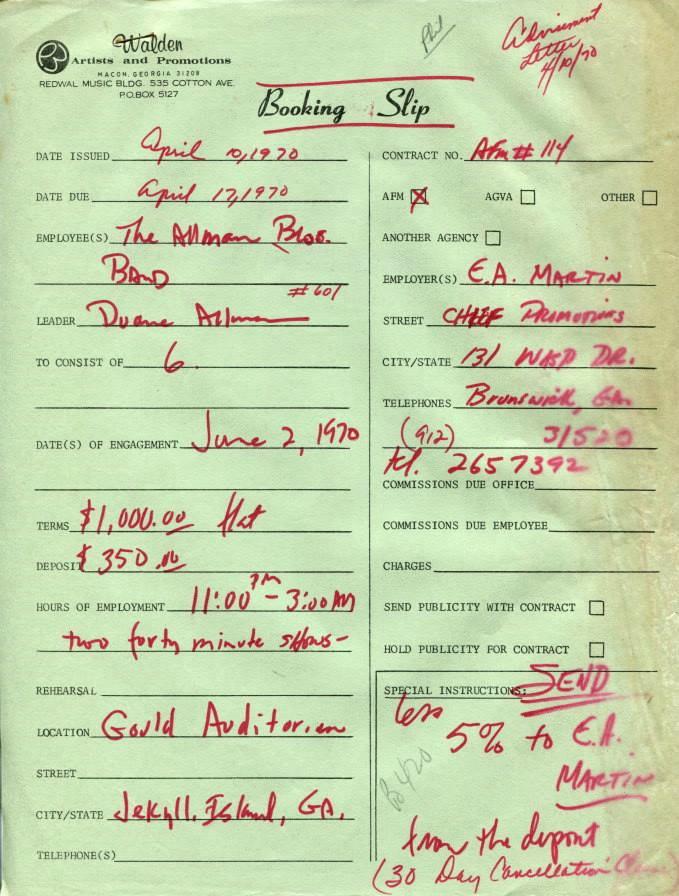 Walden
Artists and Promotions
MACON, GEORGIA 31208
REDWAL MUSIC BLDG. 535 COTTON AVE.
P.O. BOX 5127
Phil
Advisement
Letter
4/10/70
Booking Slip
DATE ISSUED April 10, 1970
DATE DUE April 17, 1970
EMPLOYEE(S) The Allman Bros.
BAND
#601
LEADER Duane Allman
TO CONSIST OF 6.
DATE(S) OF ENGAGEMENT June 2, 1970
TERMS $1,000.00 flat
DEPOSIT $350.00
HOURS OF EMPLOYMENT 11:00 PM - 3:00 AM
two forty minute shows-
REHEARSAL
LOCATION Gould Auditorium
STREET
CITY/STATE Jekyll Island, GA.
TELEPHONE(S)
CONTRACT NO. Afm # 114
AFM X AGVA OTHER
ANOTHER AGENCY
EMPLOYER(S) E.A. MARTIN
STREET CHIEF PROMOTIONS
CITY/STATE 131 WASP DR.
TELEPHONES Brunswick, Ga.
(912) 31520
tel. 265 7392
COMMISSIONS DUE OFFICE
COMMISSIONS DUE EMPLOYEE
CHARGES
SEND PUBLICITY WITH CONTRACT
HOLD PUBLICITY FOR CONTRACT
SPECIAL INSTRUCTIONS: SEND
less
5% to E.A.
MARTIN
from the deposit
(30 Day Cancellation Clause)